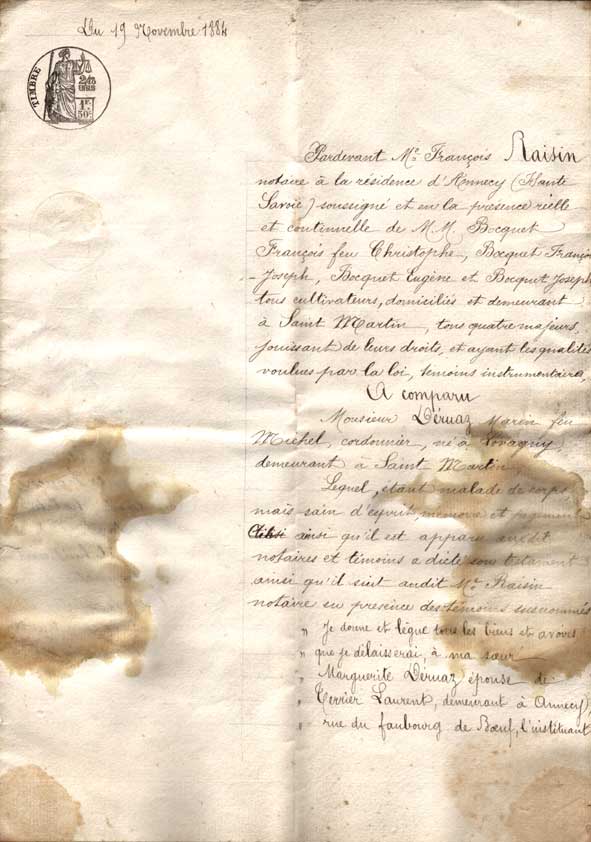 Du 19 Novembre 1884
TIMBRE
2/10
EN SUS
1F.
50c.
Pardevant Me. François Raisin
notaire à la résidence d'Annecy (Haute
Savoie) soussigné et en la présence réelle
et continuelle de M.M. Bocquet
François feu Christophe, Bocquet François
-Joseph, Bocquet Eugène et Bocquet Joseph
tous cultivateurs, domiciliés et demeurant
à Saint Martin, tous quatre majeurs,
jouissant de leurs droits, et ayant les qualités
voulues par la loi, témoins instrumentaires,
A comparu
Monsieur Déruaz Marin feu
Michel, cordonnier, né à Lovagny,
demeurant à Saint Martin,
Lequel, étant malade de corps,
mais sain d'esprit, mémoire et jugement
ainsi qu'il est apparu audit
notaires et témoins a dicté son testament
ainsi qu'il suit audit Me. Raisin
notaire en présence des témoins susnommés
„ Je donne et lègue tous les biens et avoirs
„ que je délaisserai, à ma sœur
„ Marguerite Déruaz épouse de
„ Terrier Laurent, demeurant à Annecy,
„ rue du faubourg de Bœuf, l'instituant